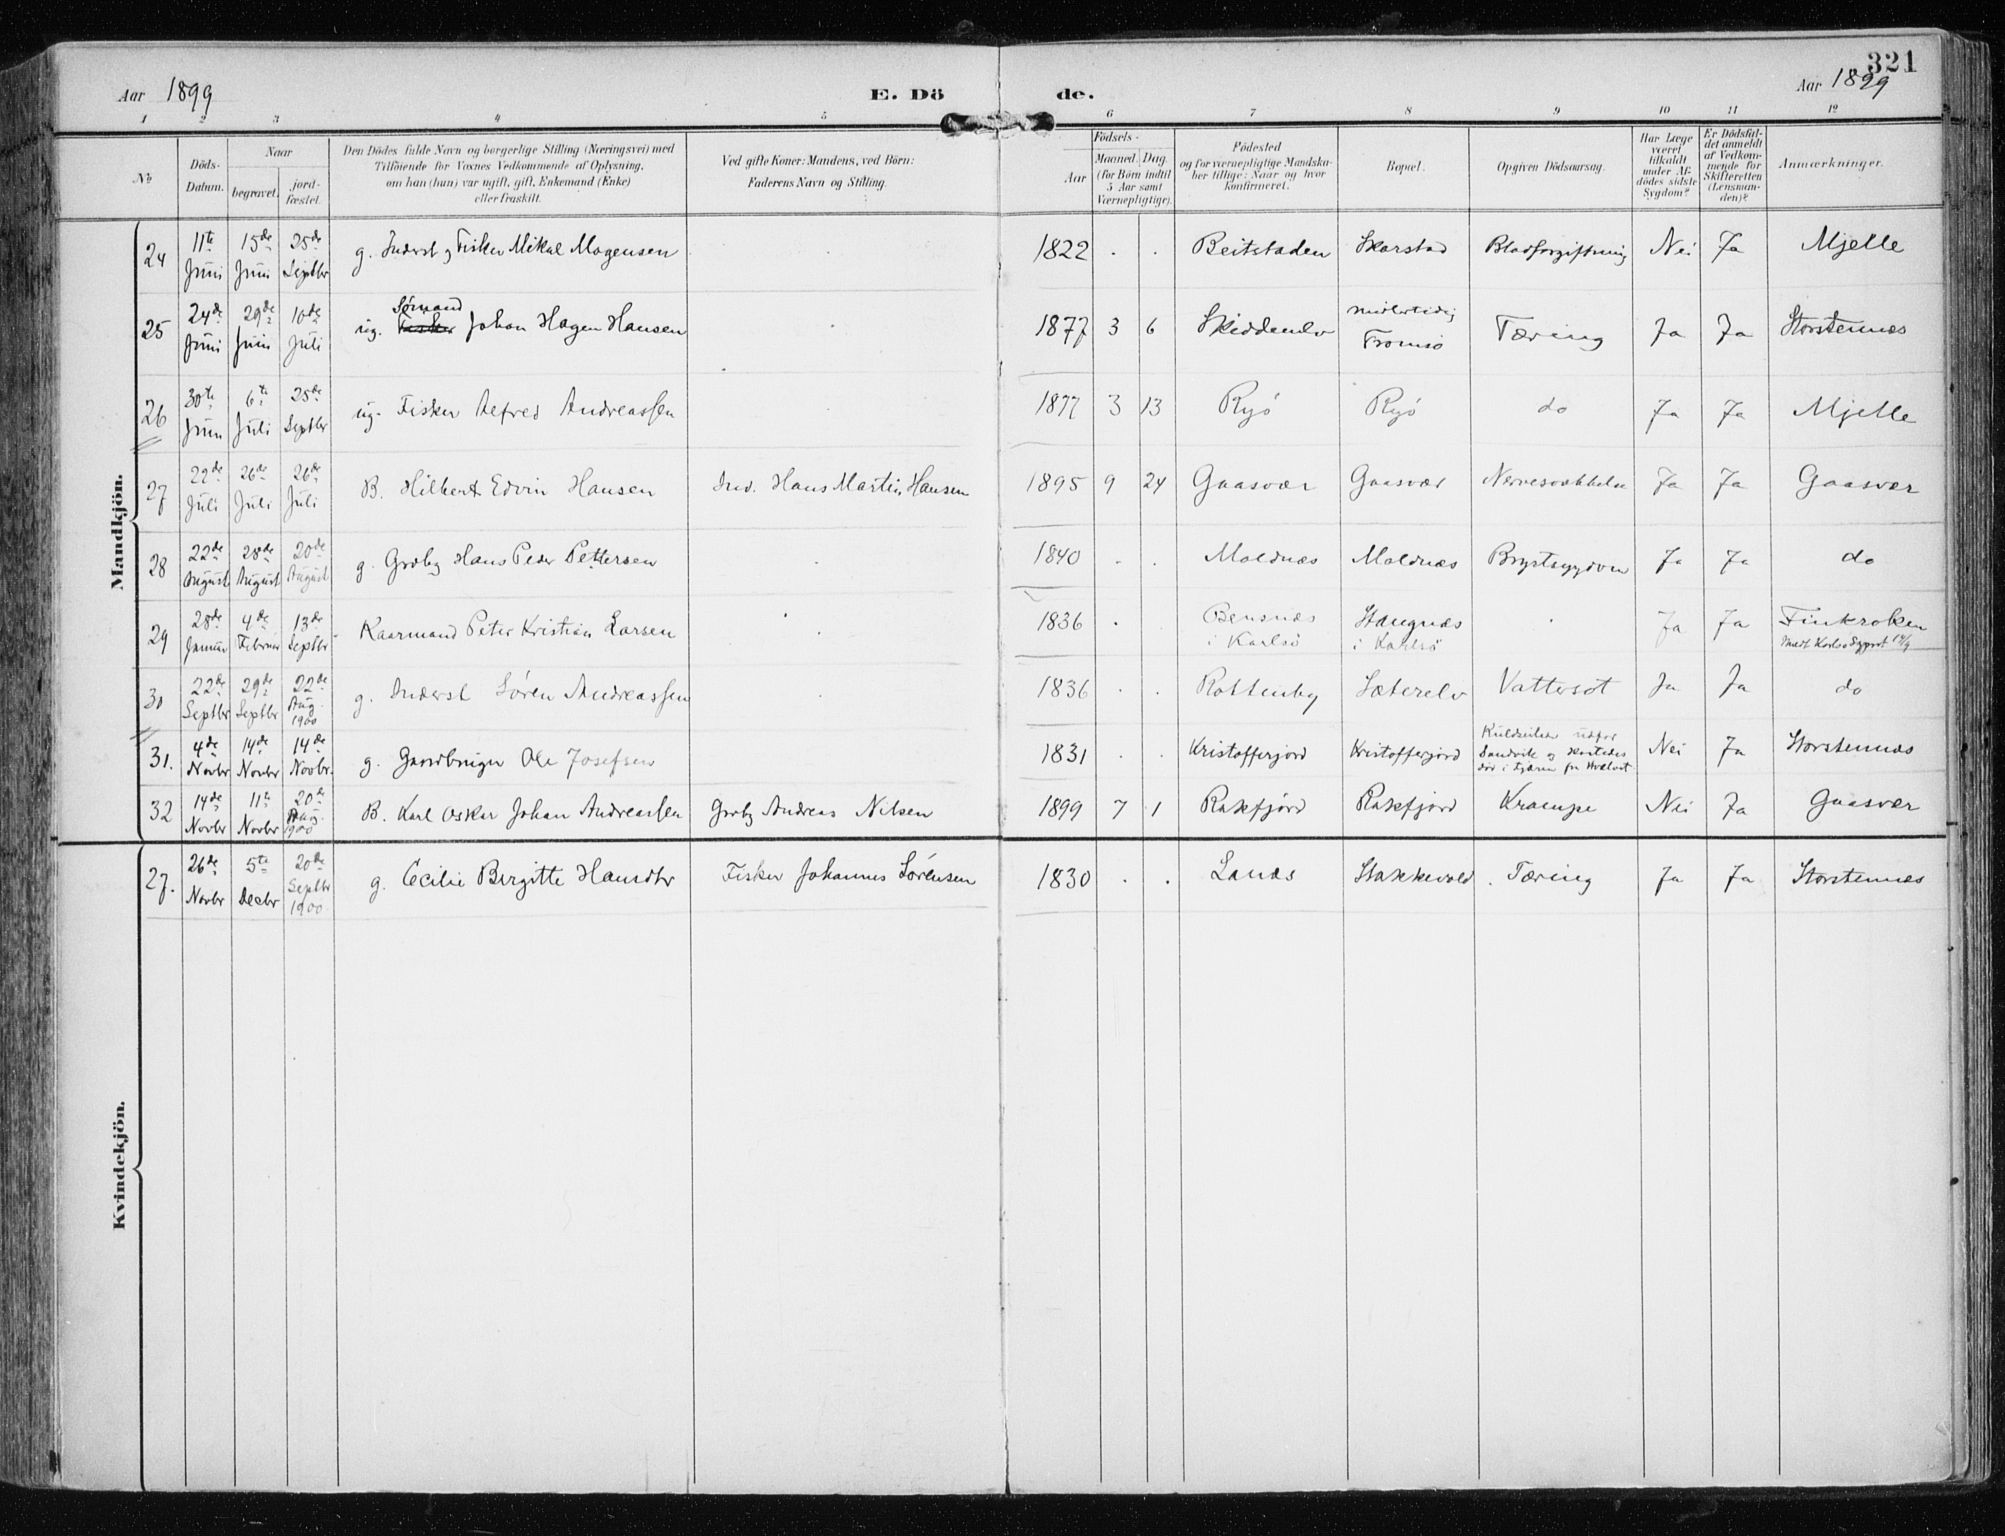 321
Aar 1899
E. Dö
de.
Aar 1899
1 2 3 4 5 6 7 8 9 10 11 12
№
Döds-
Datum.
Naar
begravet.
jord-
fæstet.
Den Dödes fulde Navn og borgerlige Stilling (Næringsvei) med
Tilföiende for Voxnes Vedkommende af Oplysning,
om han (hun) var ugift, gift, Enkemand (Enke)
eller fraskilt.
Ved gifte Koner: Mandens, ved Börn:
Faderens Navn og Stilling.
Födsels-
Aar
Maaned. Dag.
(for Börn indtil
5 Aar samt
Værnepligtige).
Födested
og for værnepligtige Mandska-
ber tillige: Naar og hvor
konfirmeret.
Bopæl.
Opgiven Dödsaarsag.
Har Læge
været
tilkaldt
under Af-
dödes sidste
Sygdom?
Er Dödsfal-
det anmeldt
af Vedkom-
mende for
Skifteretten
(Lensman-
den)?
Anmærkninger.
Mandkjön.
24 11te Juni 15de Juni 25de Septbr g. Inderst og Fisker Mikal Mogensen 1822 Beitstaden Skarstad Blodforgiftning Nei Ja Mjelle
25 24de Juni 29de Juni 10de Juli ug. Sømand Fisker Johan Hagen Hansen 1877 3 6 Skiddenelv midlertidig Tromsö Tæring Ja Ja Storstennæs
26 30te Juni 6te Juli 25de Septbr ug. Fisker Alfred Andreassen 1877 3 13 Ryö Ryö do Ja Ja Mjelle
27 22de Juli 26de Juli 26de Juli B. Hilbert Edvin Hansen Ind. Hans Martin Hansen 1895 9 24 Gaasvær Gaasvær Nervesvækkelse Ja Ja Gaasvær
28 22de August 28de August 20de August g. Grdbg Hans Peder Pettersen 1840 Maldnæs Maldnæs Brystsygdom Ja Ja do
29 28de Januar 4de Februar 13de Septbr Kaarmand Peter Kristian Larsen 1836 Bensnæs i Karlsö Stangnæs i Karlsö Ja Ja Finkroken
30 22de Septbr 29de Septbr 22de Aug. 1900 g. Inderst Søren Andreassen 1836 Rottenby Sæterelv Vattersot Ja Ja do
31. 4de Novbr 14de Novbr 14de Novbr. g. Gaardbruger Ole Josefsen 1831 Kristofferjord Kristofferjord Nei Ja Storstennæs
32 14de Novbr 11te Novbr 20de Aug. 1900 B. Karl Oskar Johan Andreassen Grdbg Andreas Nilsen 1899 7 1 Rakfjord Rakfjord Krampe Nei Ja Gaasvær
Kvindekjön.
27. 26de Novbr 5te Decbr 20de Septbr 1900 g. Cecilie Birgitte Hansdtr Fisker Johannes Sörensen 1830 Lanæs Stakkevold Tæring Ja Ja Storstennæs